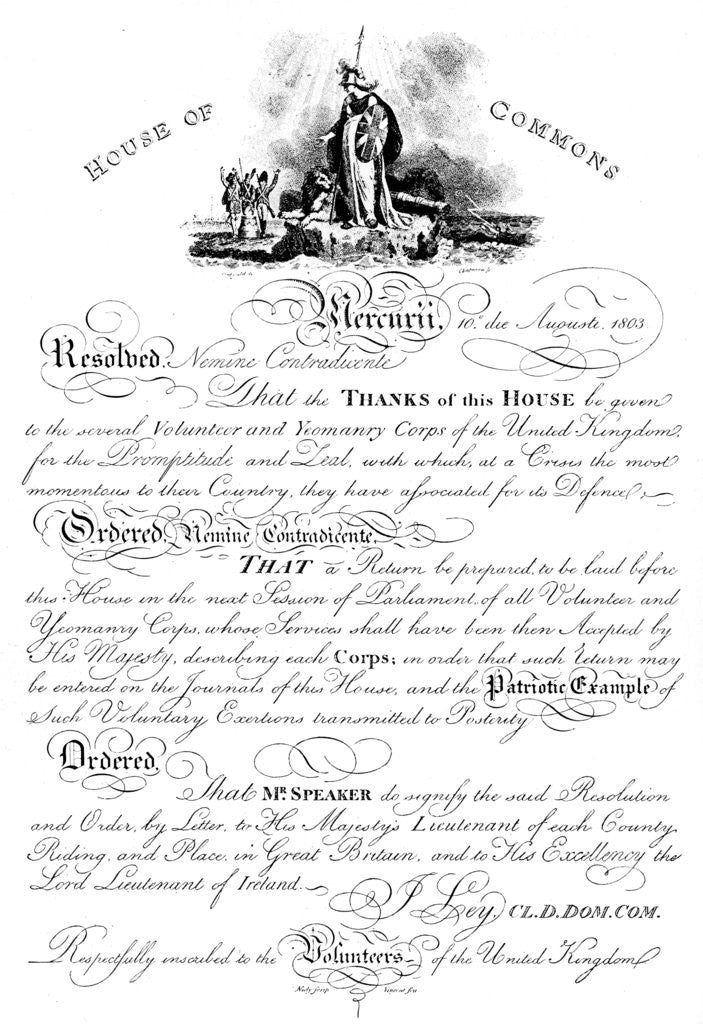 HOUSE OF COMMONS
Mercurii, 10.° die Augusti. 1803
Resolved, Nemine Contradicente
That the THANKS of this HOUSE be given
to the several Volunteer and Yeomanry Corps of the United Kingdom,
for the Promptitude and Zeal, with which, at a Crisis the most
momentous to their Country, they have associated for its Defence
Ordered, Nemine Contradicente,
THAT a Return be prepared, to be laid before
this House in the next Session of Parliament, of all Volunteer and
Yeomanry Corps, whose Services shall have been then Accepted by
His Majesty, describing each Corps; in order that such return may
be entered on the Journals of this House, and the Patriotic Example of
Such Voluntary Exertions transmitted to Posterity
Ordered,
That MR. SPEAKER do signify the said Resolution
and Order, by Letter, to His Majesty's Lieutenant of each County,
Riding, and Place, in Great Britain, and to His Excellency the
Lord Lieutenant of Ireland.
J Ley, CL.D.DOM.COM.
Respectfully inscribed to the Volunteers of the United Kingdom
Vincent scu